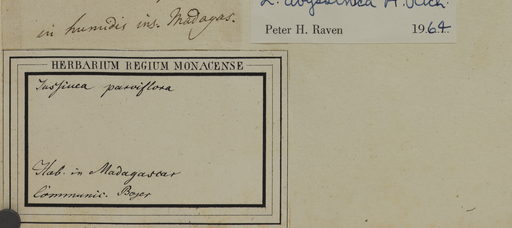 L. abyssinica A. Rich.
Peter H. Raven 1964
in humidis ins. Madagas.
HERBARIUM REGIUM MONACENSE
Jussiuea parviflora
Hab. in Madagascar
Communic. Bojer